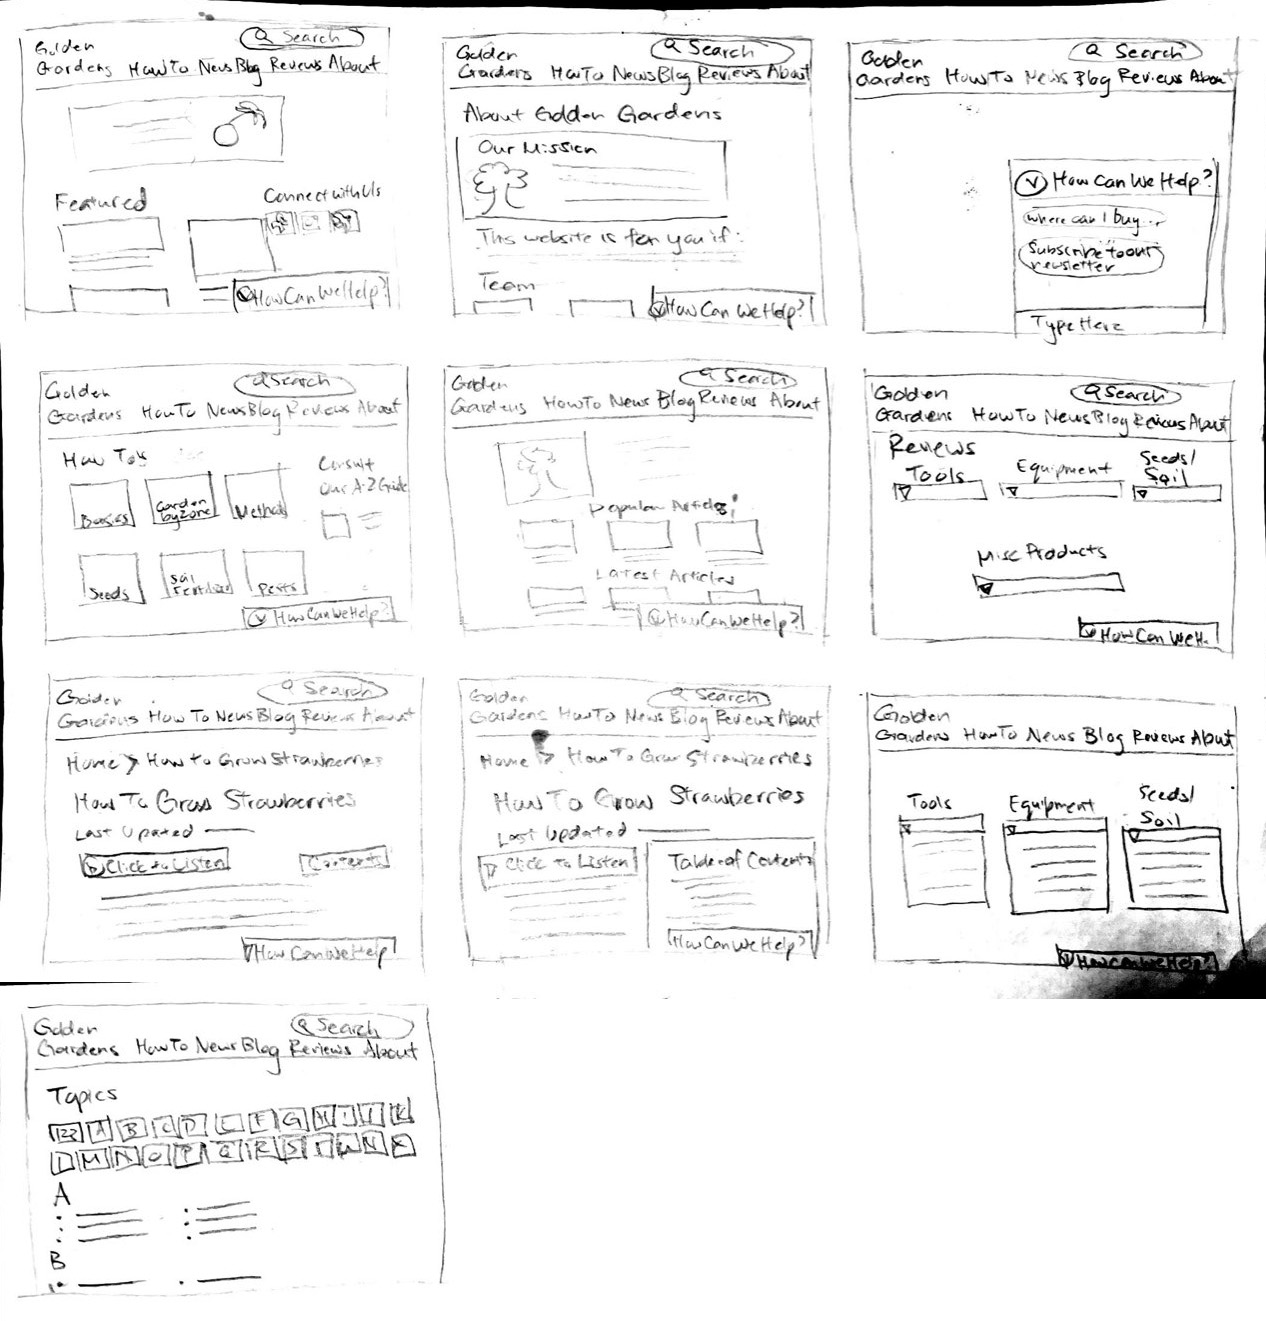 Golden
Search
Gardens How To News Blog Reviews About
Featured
Connect with Us
How Can We Help?
Golden
Search
Gardens How To News Blog Reviews About
About Golden Gardens
Our Mission
This website is for you if:
Team
How Can We Help?
Golden
Search
Gardens How To News Blog Reviews About
How Can We Help?
Where can I buy...
Subscribe to our
newsletter
Type Here
Golden
Search
Gardens How To News Blog Reviews About
How To
Consult
Our A-Z Guide
Basics
Garden
by Zone
Methods
Seeds
Soil
Fertilizer
Pests
How Can We Help?
Golden
Search
Gardens How To News Blog Reviews About
Popular Articles
Latest Articles
How Can We Help?
Golden
Search
Gardens How To News Blog Reviews About
Reviews
Tools
Equipment
Seeds/
Soil
Misc Products
How Can We H.
Golden
Search
Gardens How To News Blog Reviews About
Home > How to Grow Strawberries
How To Grow Strawberries
Last Updated
Click to Listen
Contents
How Can We Help
Golden
Search
Gardens How To News Blog Reviews About
Home > How To Grow Strawberries
How To Grow Strawberries
Last Updated
Click to Listen
Table of Contents
How Can We Help?
Golden
Gardens How To News Blog Reviews About
Tools
Equipment
Seeds/
Soil
How Can We Help?
Golden
Search
Gardens How To News Blog Reviews About
Topics
123 A B C D E F G H I J K
L M N O P Q R S T
A
B